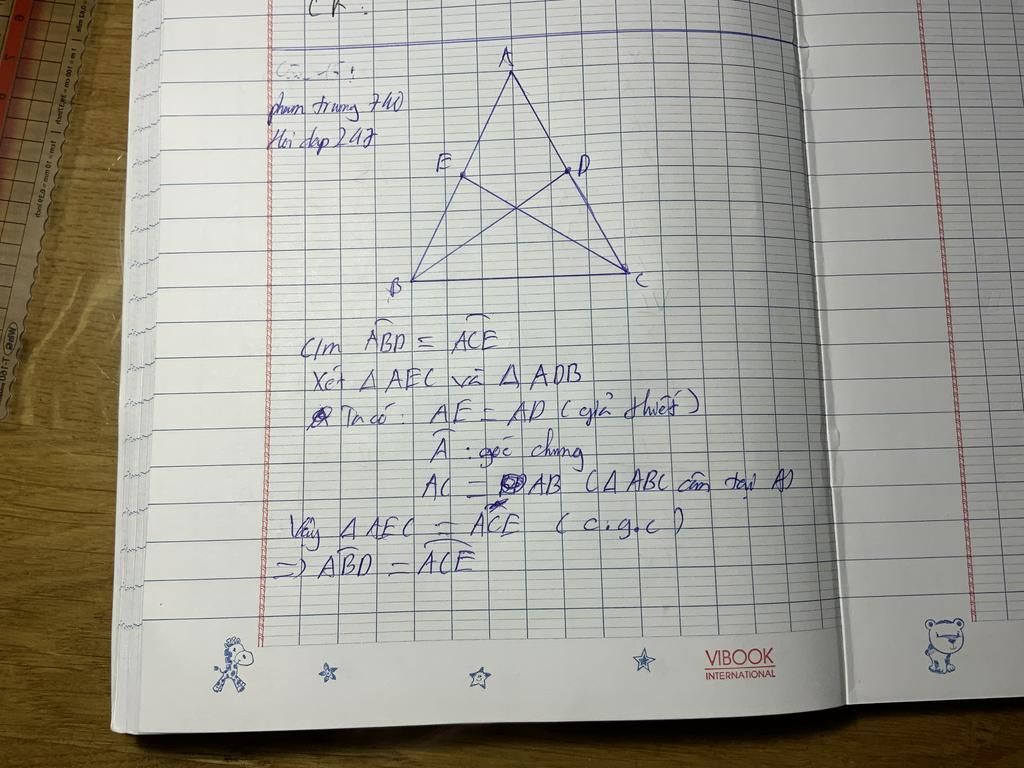 CK:
phamtrung740
Hoidap247
A
E
D
B
C
C/m ABD = ACE
Xét Δ AEC và Δ ADB
Ta có: AE = AD (giả thiết)
A : góc chung
AC = AB (Δ ABC cân tại A)
Vậy Δ AEC = ACE (c.g.c)
=> ABD = ACE
VIBOOK
INTERNATIONAL